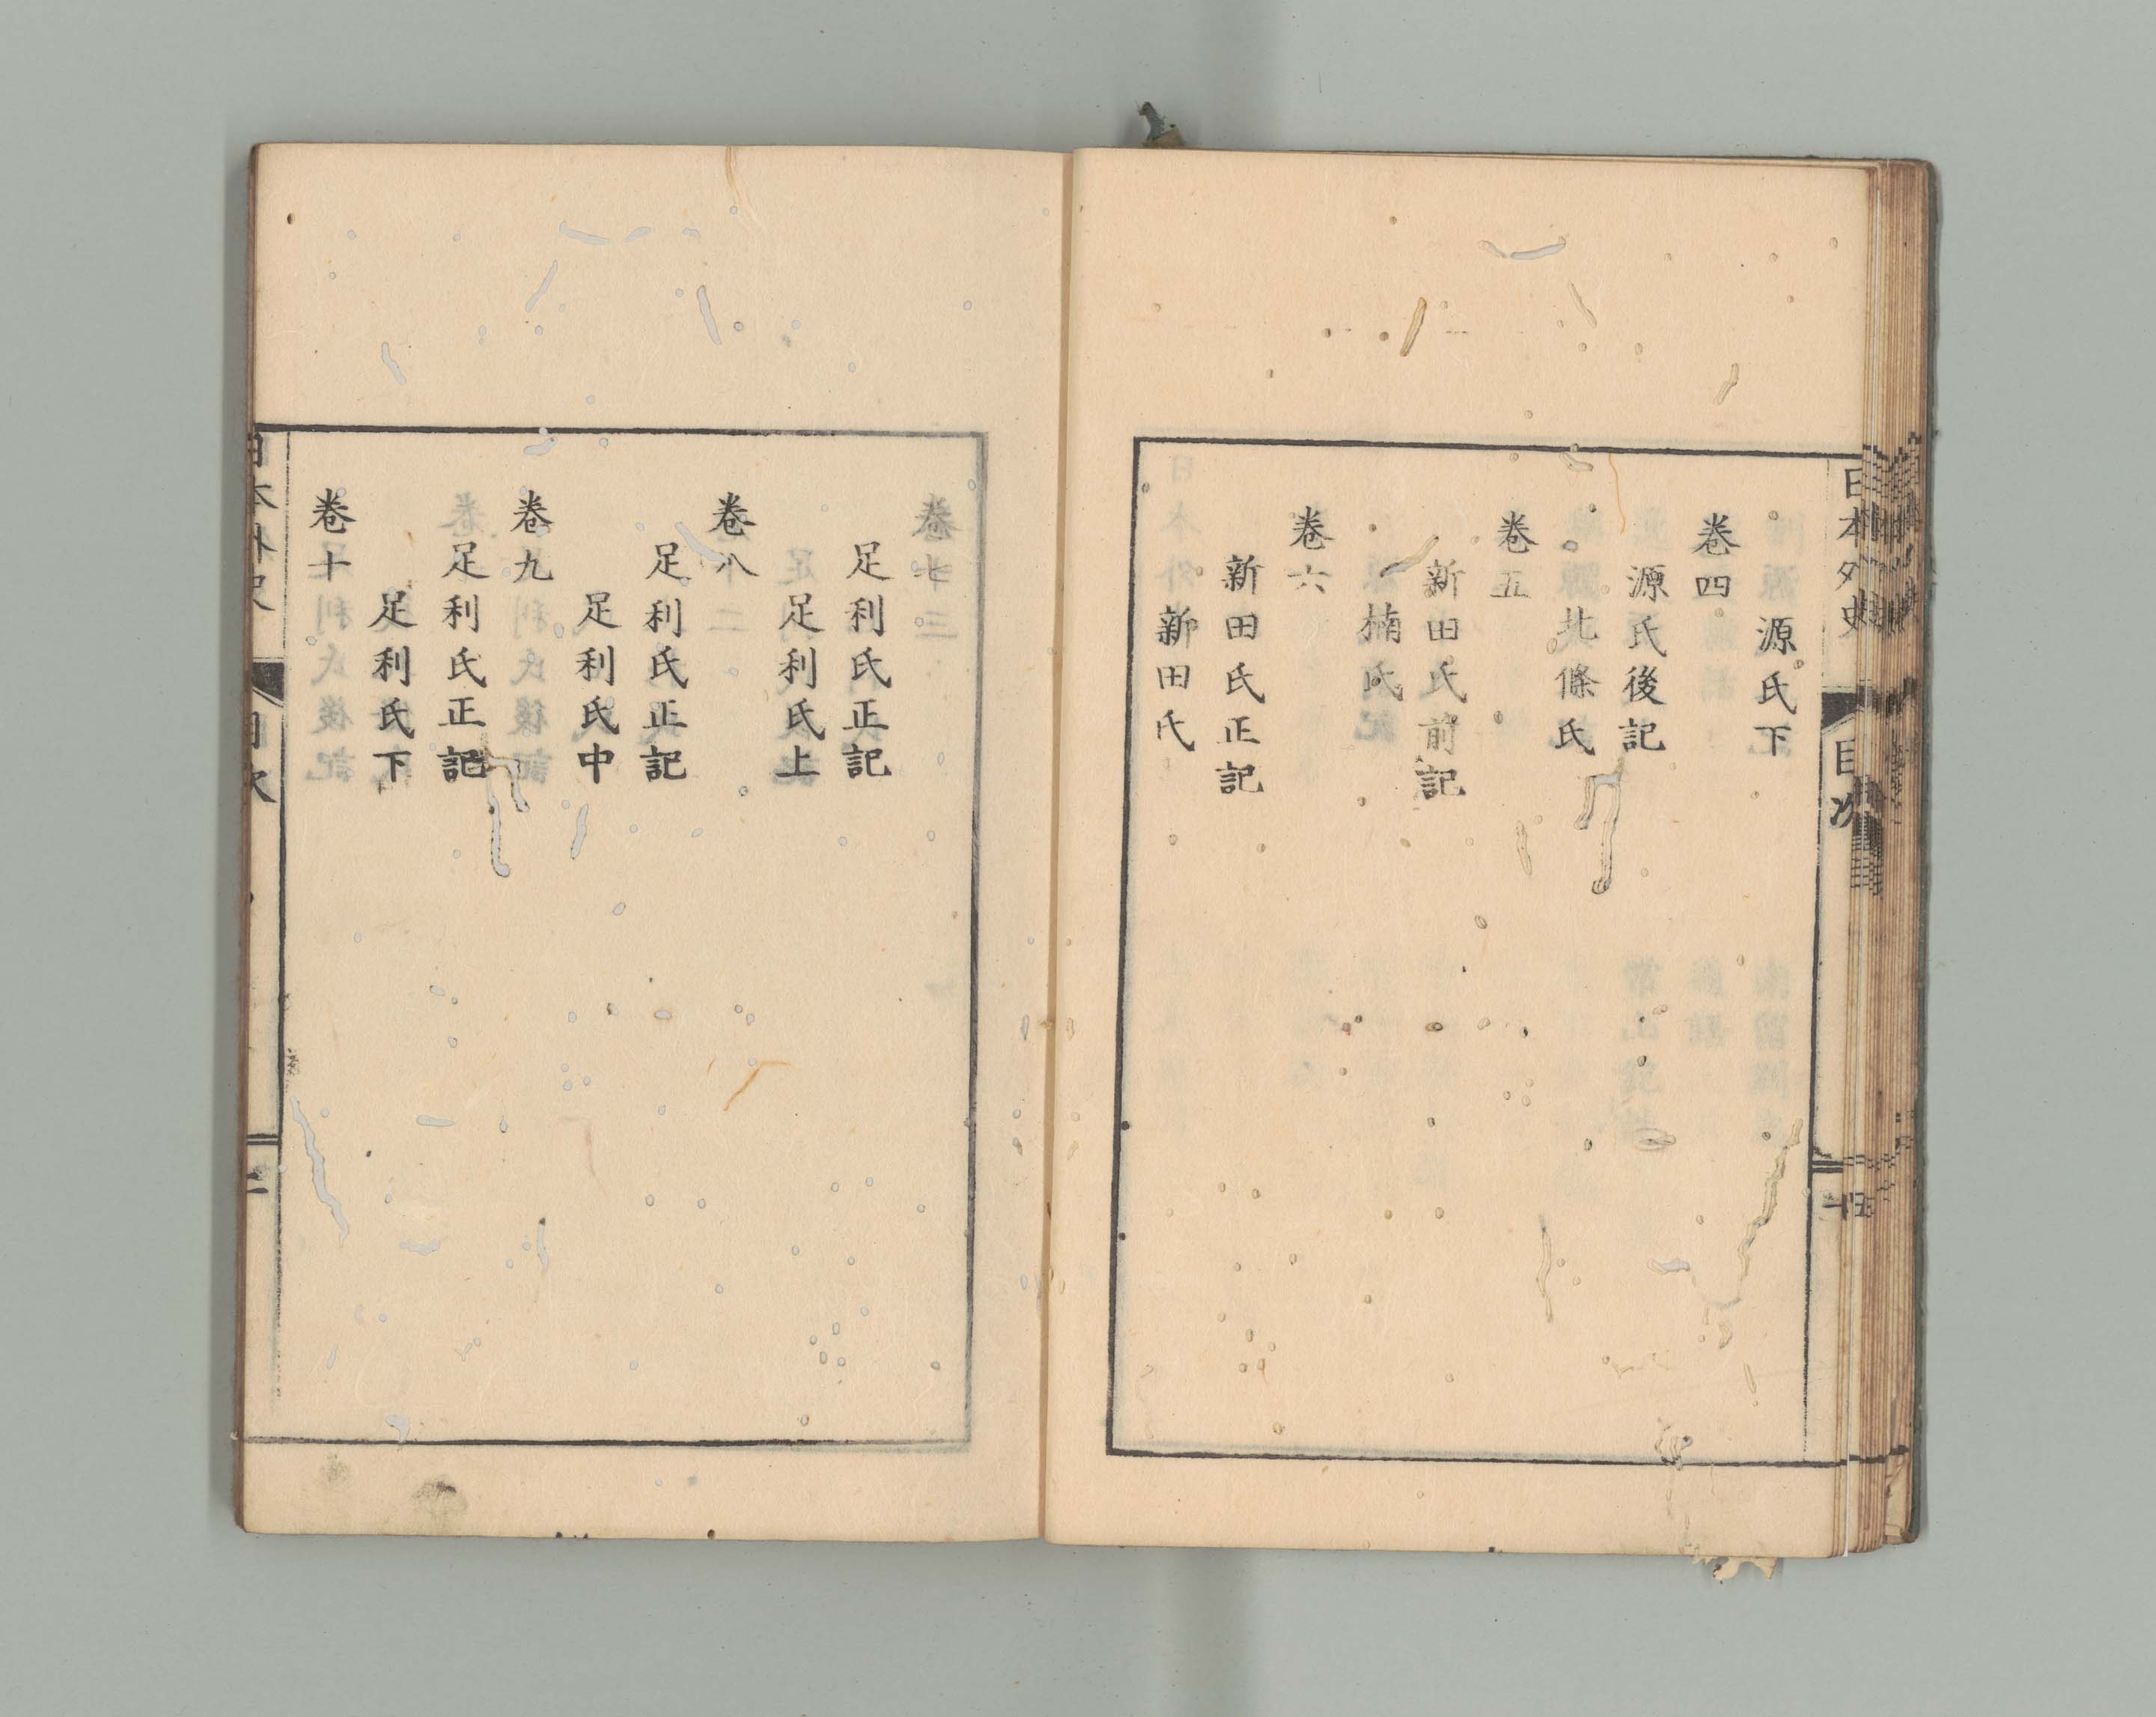 日本外史
目次
源氏下
卷四
源氏後記
北條氏
卷五
新田氏前記
楠氏
卷六
新田氏正記
新田氏
卷七
足利氏正記
足利氏上
卷八
足利氏正記
足利氏中
卷九
足利氏正記
足利氏下
卷十
日本外史
目次